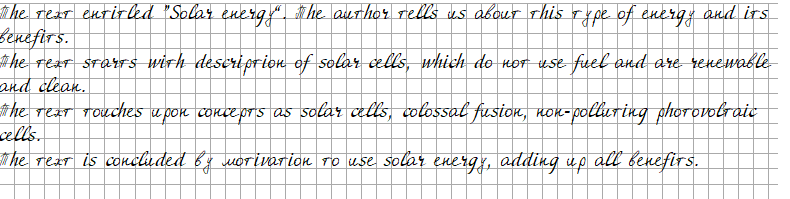 The text entitled "Solar energy". The author tells us about this type of energy and its
benefits.
The text starts with description of solar cells, which do not use fuel and are renewable
and clean.
The text touches upon concepts as solar cells, colossal fusion, non-polluting photovoltaic
cells.
The text is concluded by motivation to use solar energy, adding up all benefits.